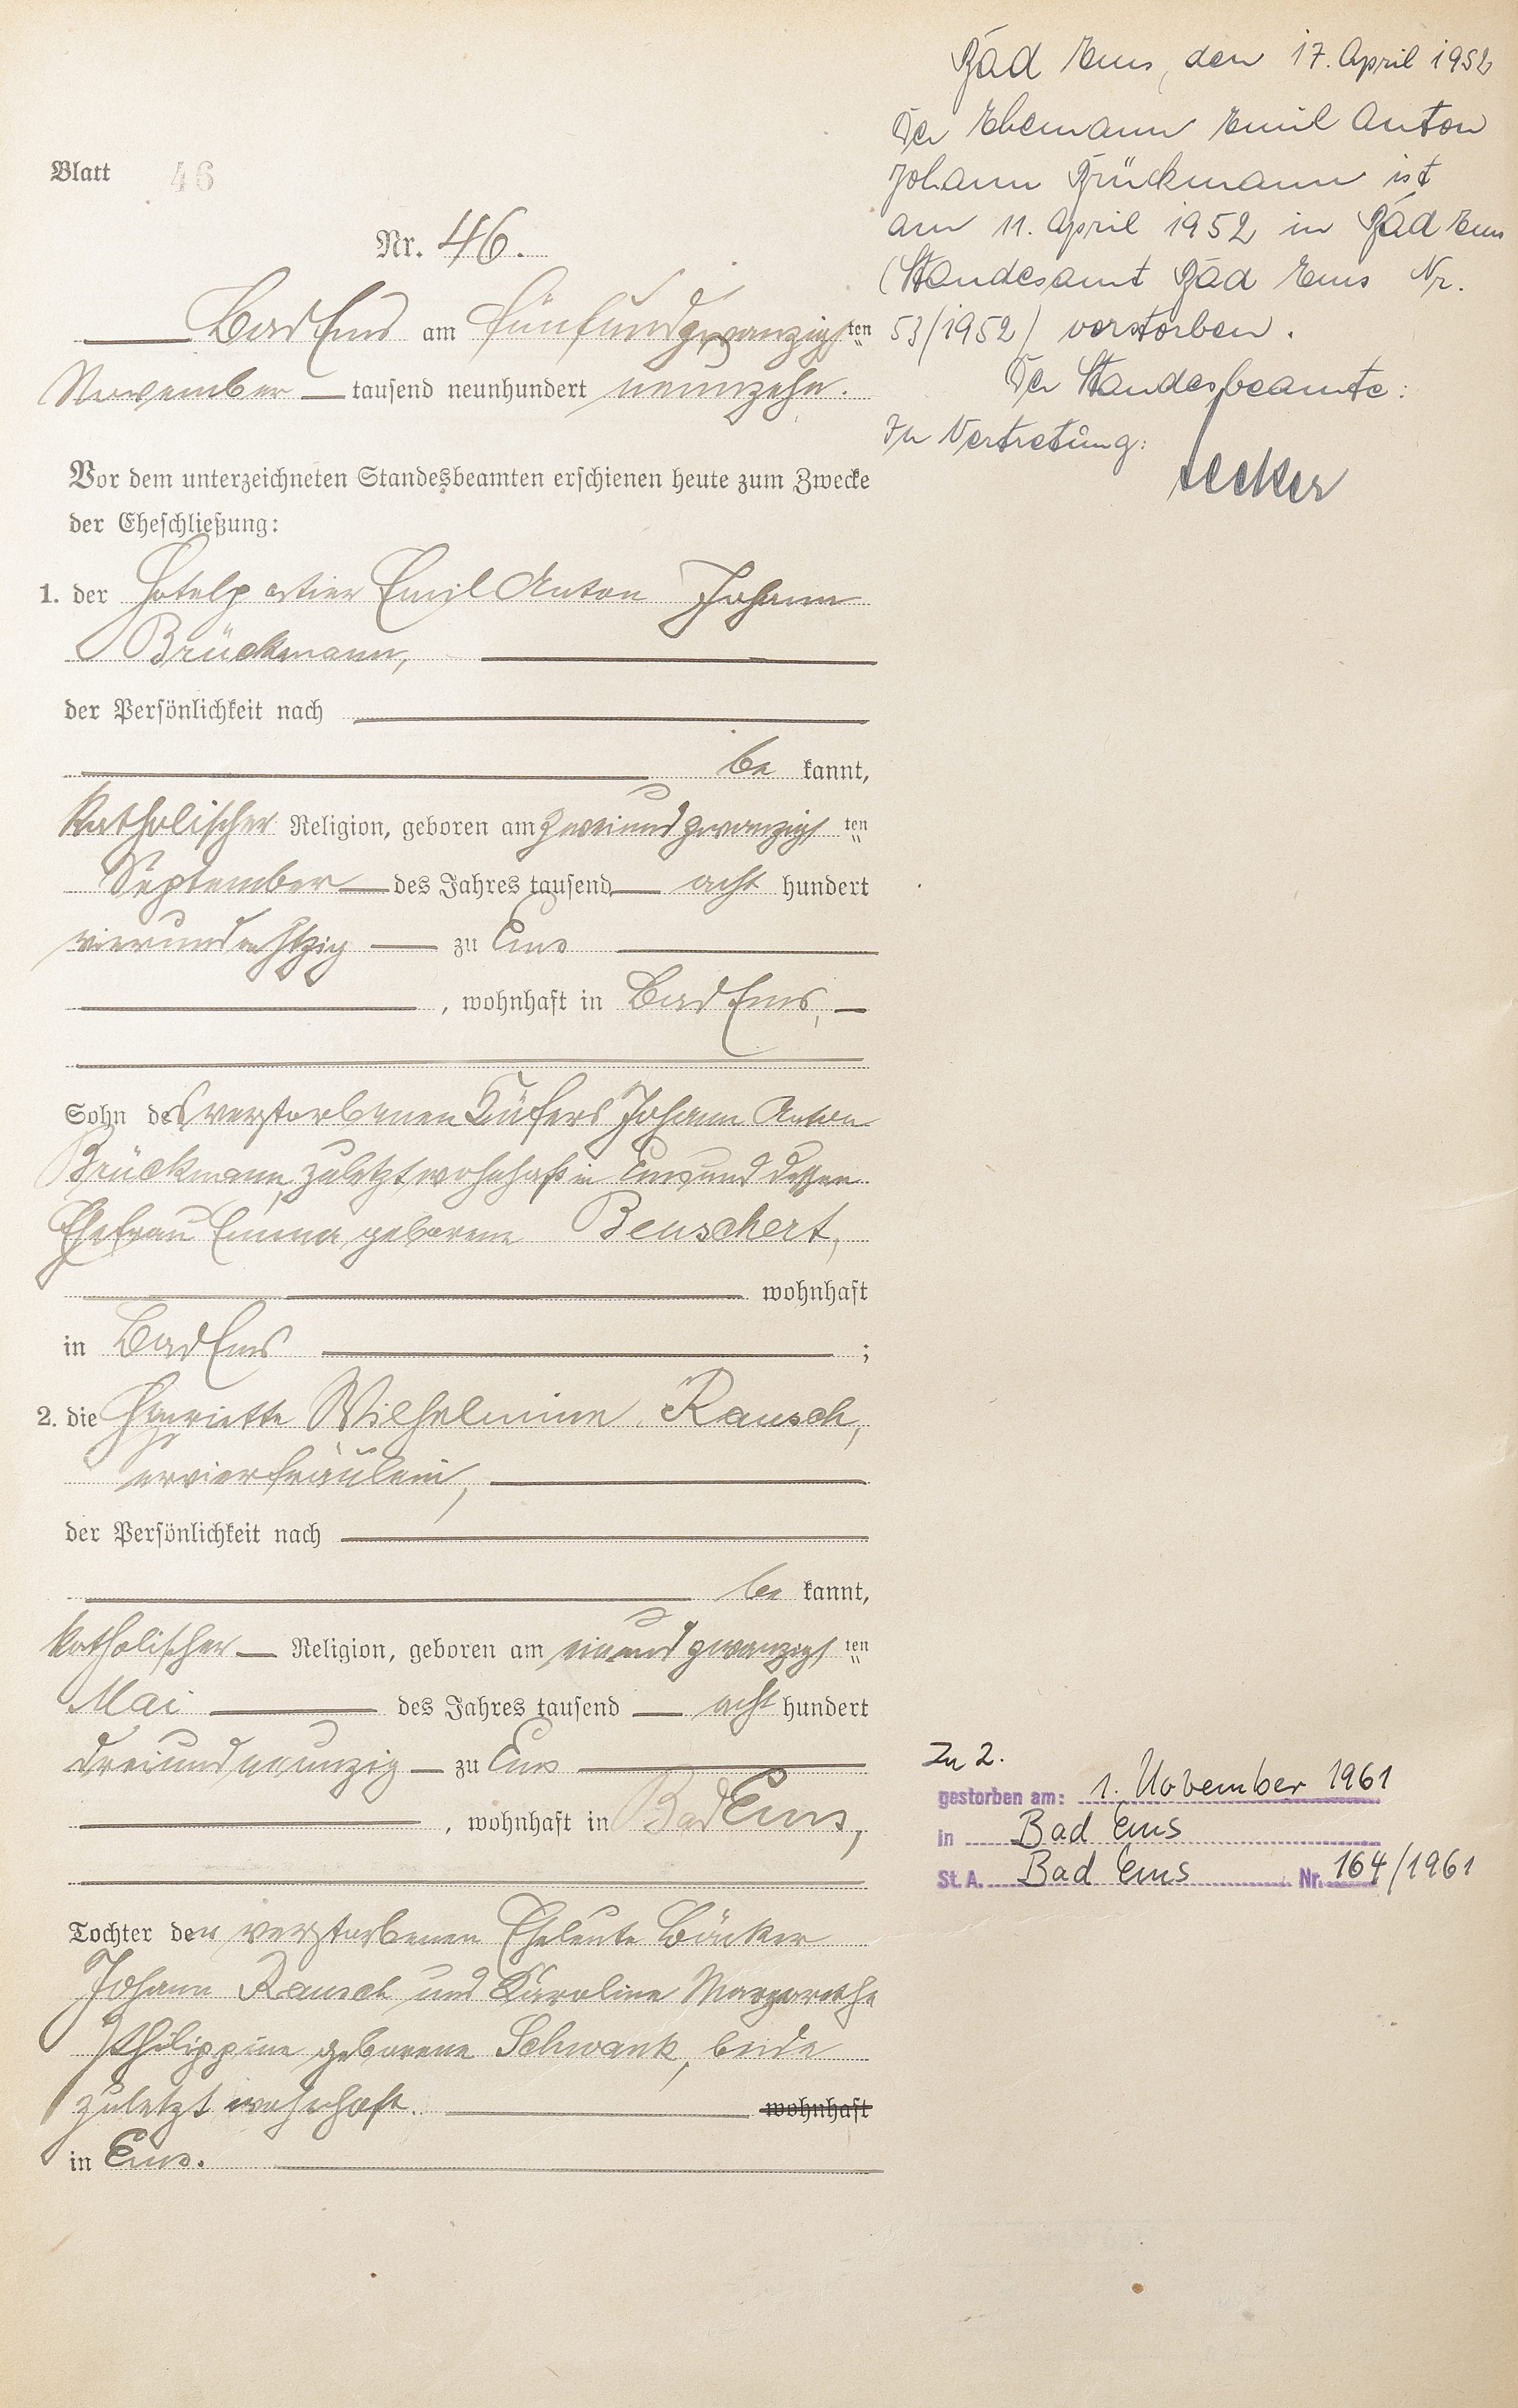 Blatt 46
Nr. 46.
Bad Ems am fünfundzwanzigsten
November tausend neunhundert neunzehn.
Vor dem unterzeichneten Standesbeamten erschienen heute zum Zwecke
der Eheschließung:
1. der Hotelportier Emil Anton Johann
Brückmann,
der Persönlichkeit nach
be kannt,
katholischer Religion, geboren am zweiundzwanzigsten
September des Jahres tausend acht hundert
vierundachtzig zu Ems
, wohnhaft in Bad Ems,
Sohn des verstorbenen Küfers Johann Anton
Brückmann, zuletzt wohnhaft in Ems und dessen
Ehefrau Emma geborene Beuschert,
wohnhaft
in Bad Ems ;
2. die Henriette Wilhelmine Rausch,
Servierfräulein,
der Persönlichkeit nach
be kannt,
katholischer Religion, geboren am einundzwanzigsten
Mai des Jahres tausend acht hundert
dreiundneunzig zu Ems
, wohnhaft in Bad Ems,
Tochter der verstorbenen Eheleute Bäcker
Johann Rausch und Karoline Margarethe
Philippine geborene Schwank, beide
zuletzt wohnhaft. wohnhaft
in Ems.
Bad Ems, den 17. April 1952
Der Ehemann Emil Anton
Johann Brückmann ist
am 11. April 1952 in Bad Ems
(Standesamt Bad Ems Nr.
53/1952) verstorben.
Der Standesbeamte:
In Vertretung:
Zu 2.
gestorben am: 1. November 1961
in Bad Ems
St. A. Bad Ems Nr. 164/1961